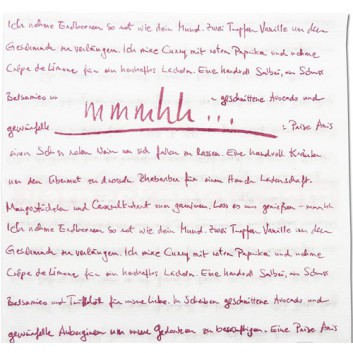 Ich nehme Erdbeeren so rot wie dein Mund. Zwei Tropfen Vanille um den
Geschmack zu verlängern. Ich mixe Curry mit rotem Paprika und nehme
Crêpe de Limone für ein herzhaftes Lächeln. Eine handvoll Salbei, ein Schuss
Balsamico geschnittene Avocado und
mmmhh...
gewürfelte Prise Anis
einen Schuss roten Wein um sich fallen zu lassen. Eine handvoll Kräuter
um den Übermut zu Rhabarber für einen Hauch Leidenschaft.
und zum garnieren. Lass es uns genießen - mmmhh
Ich nehme Erdbeeren so rot wie dein Mund. Zwei Tropfen Vanille um den
Geschmack zu verlängern. Ich mixe Curry mit rotem Paprika und nehme
Crêpe de Limone für ein herzhaftes Lächeln. Eine handvoll Salbei, ein Schuss
Balsamico und für meine Liebe. In Scheiben geschnittene Avocado und
gewürfelte Auberginen um meine Gedanken zu Eine Prise Anis